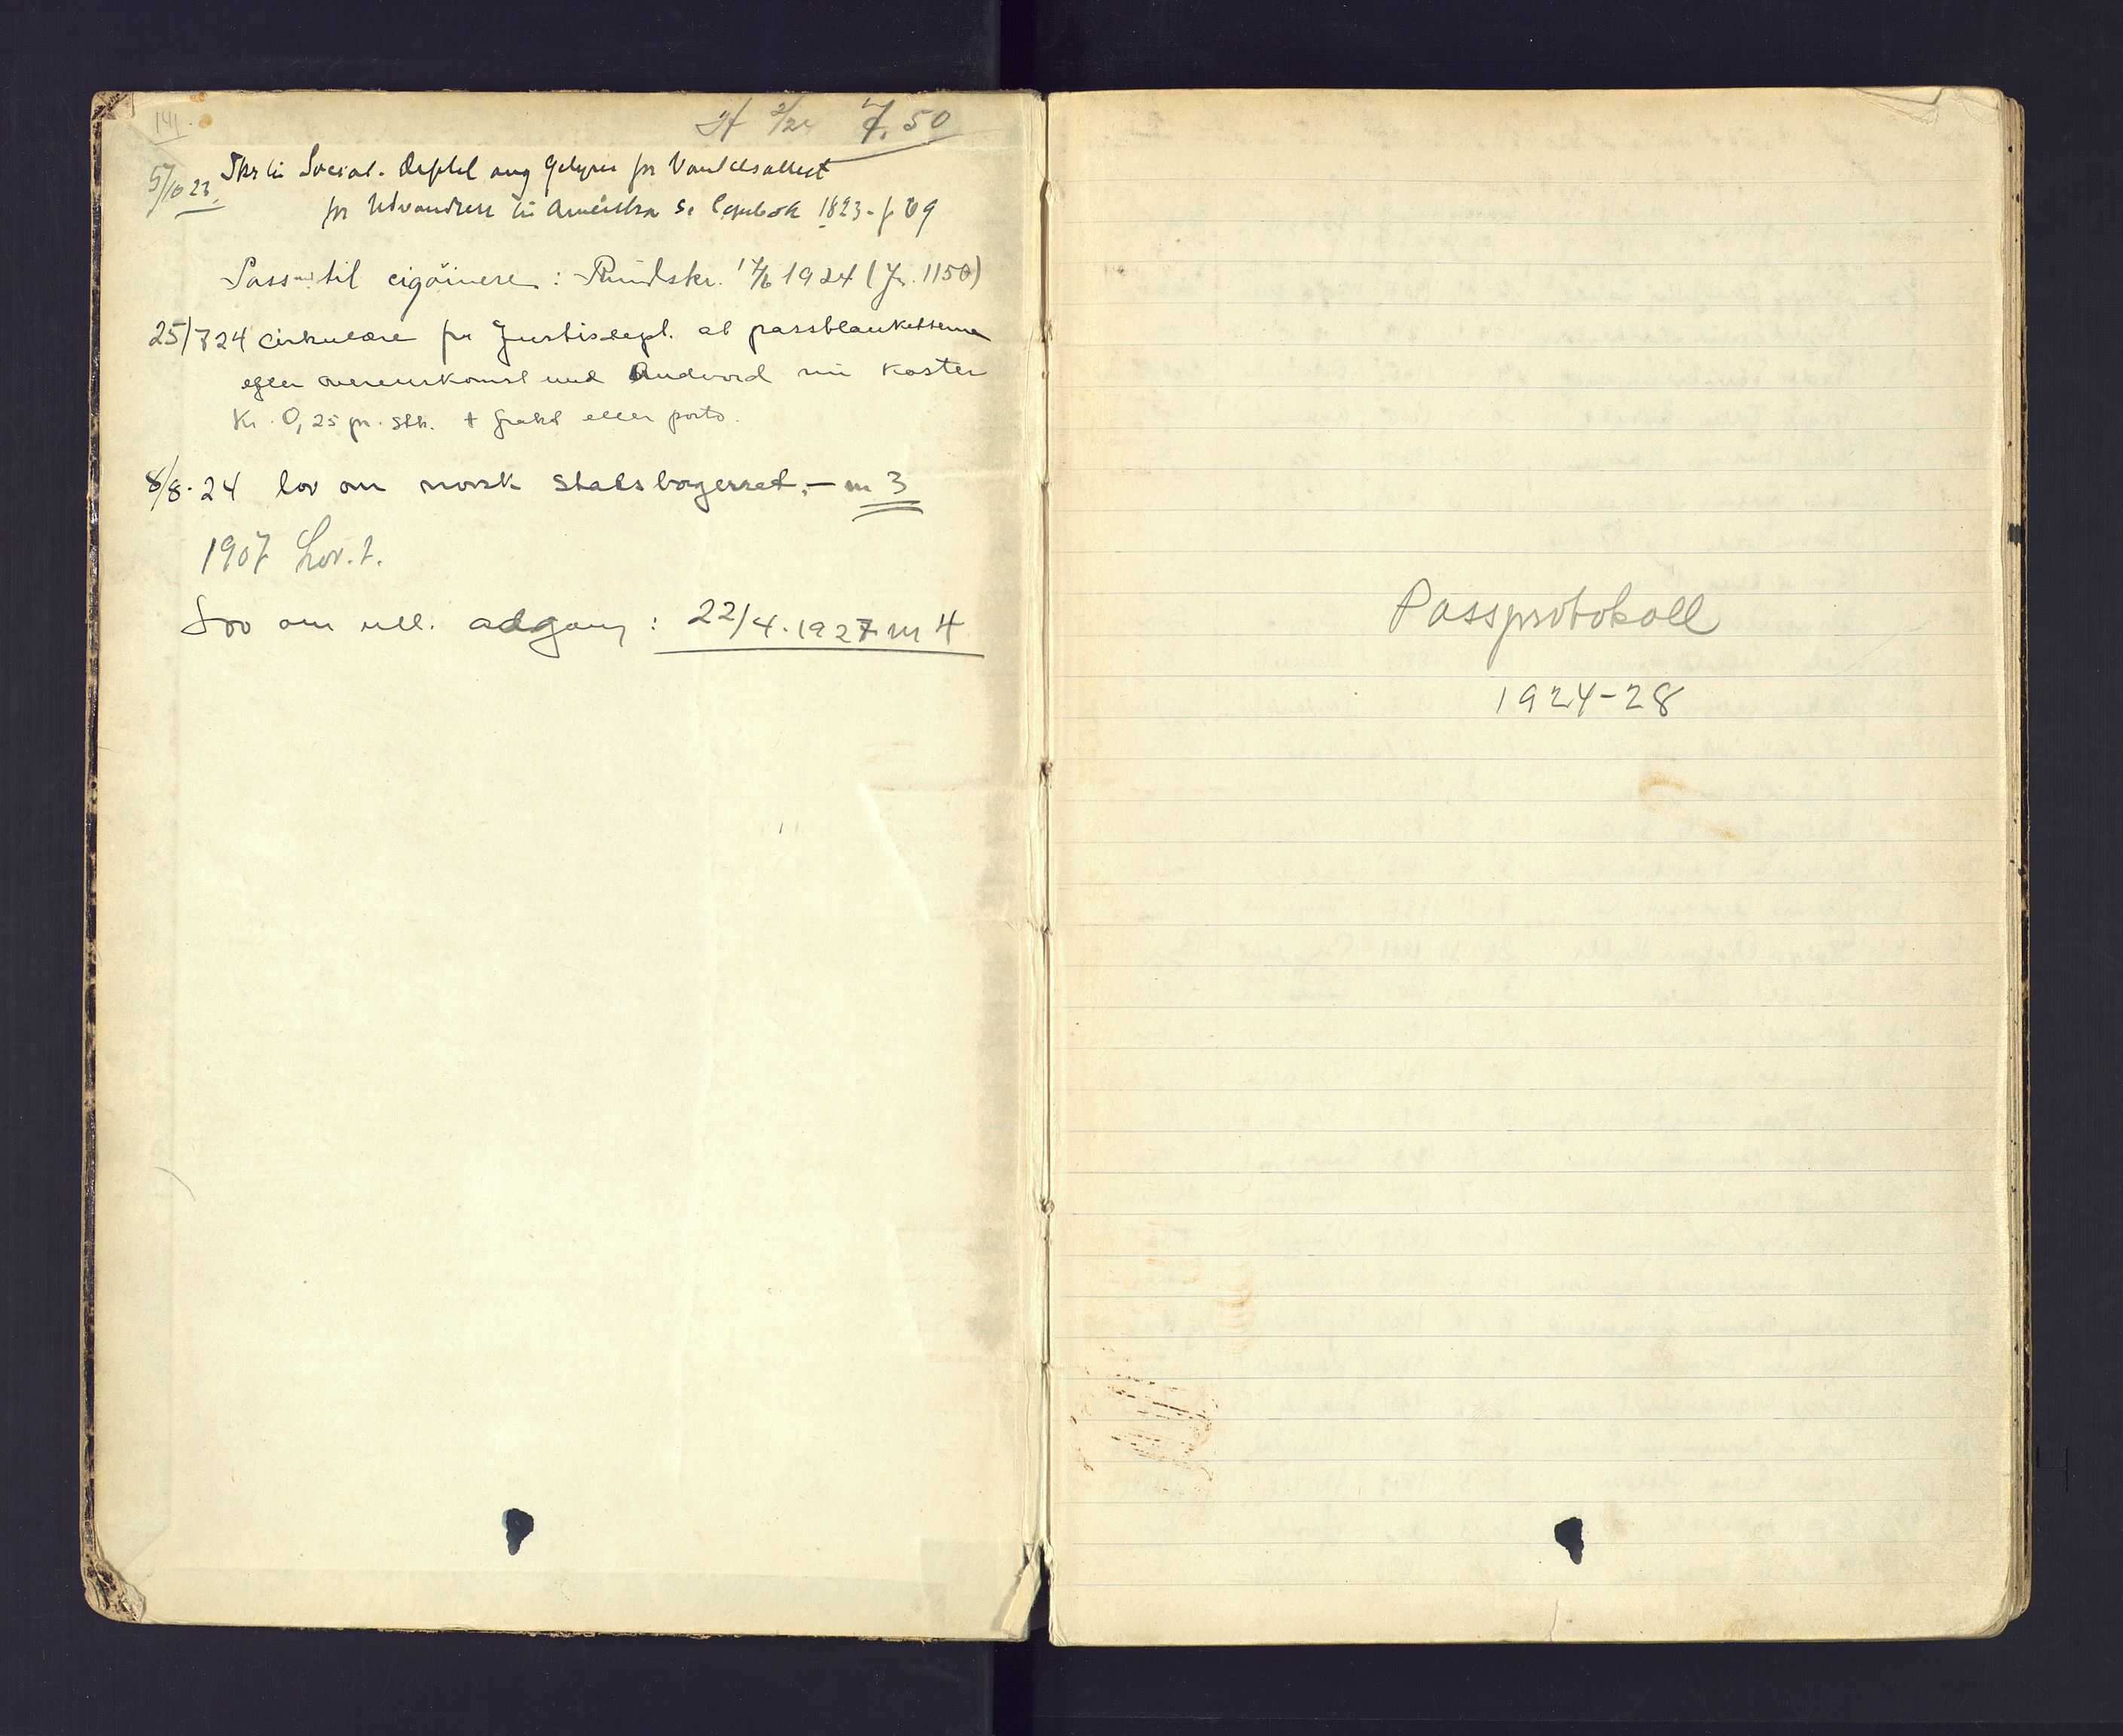 141
2/24 7,50
5/10 23. Skr til Social. Deptet ang Gebyrer for Vandelsattest
for Udvandrere til Amerika se Copibok 1823 - f 69
Pass til cigöinere : Rundskr. 17/6 1924 (Jr. 1150)
25/7 24 cirkulære fra Justisdept. at passblanketterne
efter overenskomst med Andvord nu koster
Kr. 0,25 pr. stk. + frakt eller porto.
8/8. 24 lov om norsk statsborgerret, - nr 3
1907 Lov. t.
Lov om utl. adgang : 22/4. 1927 nr 4
Passprotokoll
1924-28